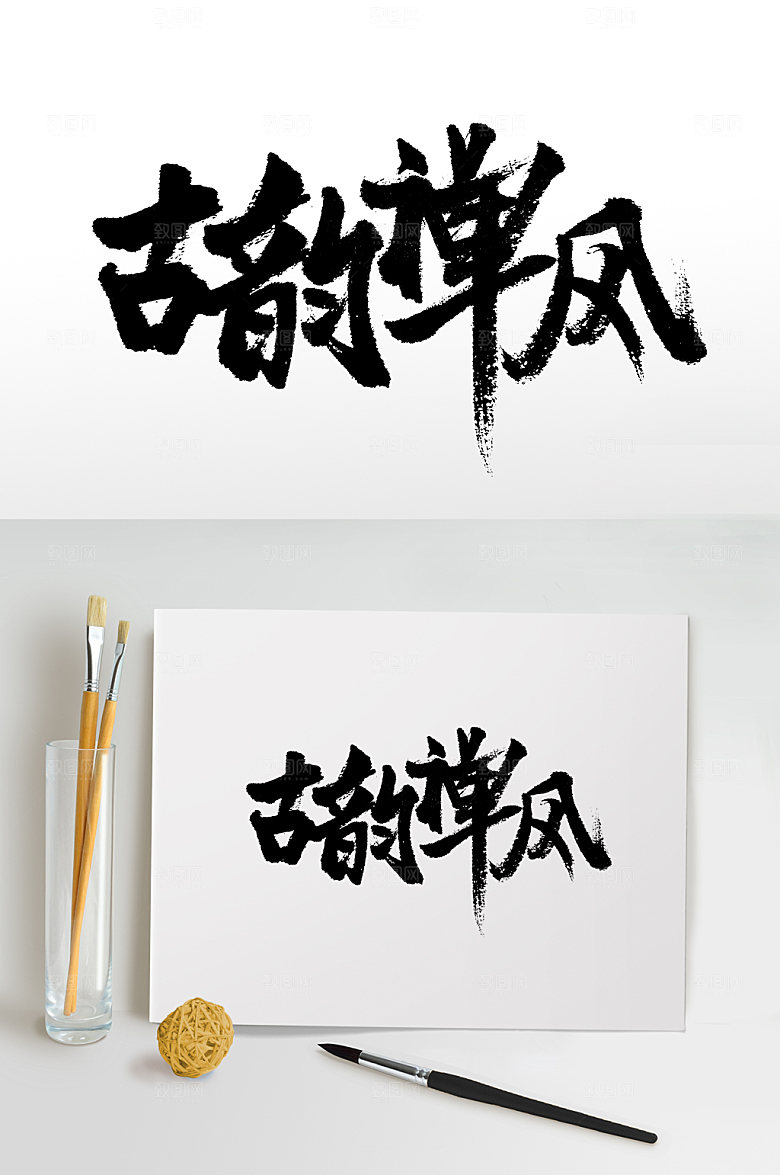 古韵禅风
古韵禅风